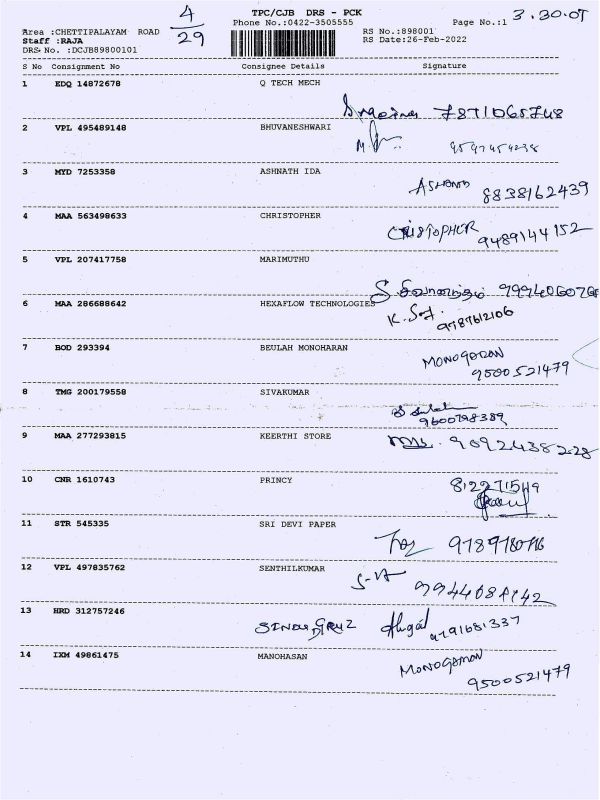 4/29
TPC/CJB DRS - PCK
3.30.07
Phone No.:0422-3505555
Page No.:1
Area :CHETTIPALAYAM ROAD
RS No.:898001
Staff :RAJA
RS Date:26-Feb-2022
DRS No. :DCJB89800101
S No Consignment No Consignee Details Signature
1 EDQ 14872678 Q TECH MECH
7871065748
2 VPL 495489148 BHUVANESHWARI
3 MYD 7253358 ASHNATH IDA
8838162439
4 MAA 563498633 CHRISTOPHER
CHRISTOPHER 9489144152
5 VPL 207417758 MARIMUTHU
6 MAA 286688642 HEXAFLOW TECHNOLOGIES
9787612106
7 BOD 293394 BEULAH MONOHARAN
9500521479
8 TMG 200179558 SIVAKUMAR
9600798389
9 MAA 277293815 KEERTHI STORE
9092438228
10 CNR 1610743 PRINCY
11 STR 545335 SRI DEVI PAPER
12 VPL 497835762 SENTHILKUMAR
13 HRD 312757246
9791681337
14 IXM 49861475 MANOHASAN
9500521479